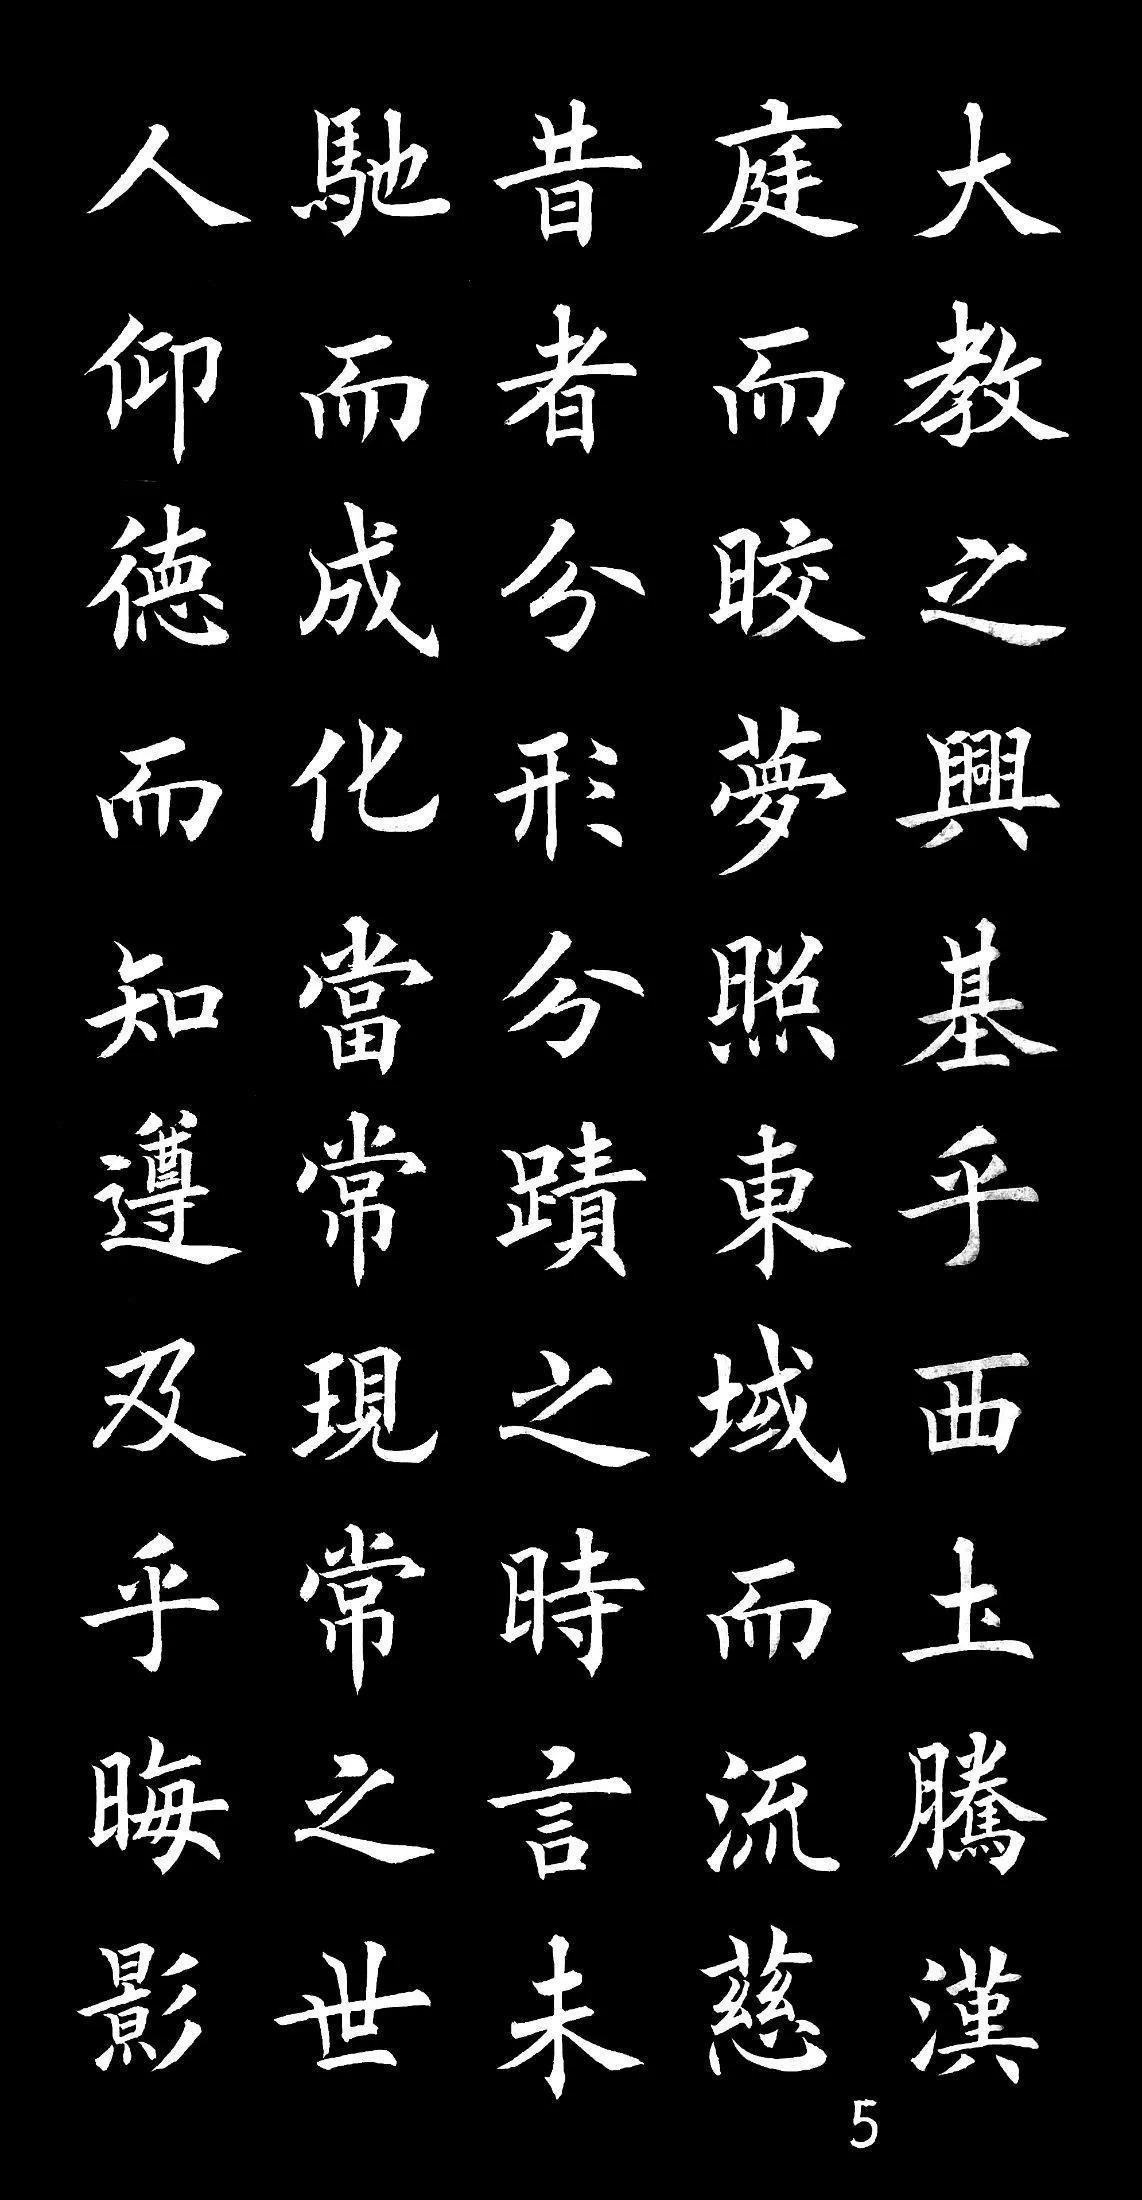 大教之興基乎西土騰漢
庭而皎夢照東域而流慈
昔者分形分蹟之時言未
馳而成化當常現常之世
人仰德而知遵及乎晦影
5